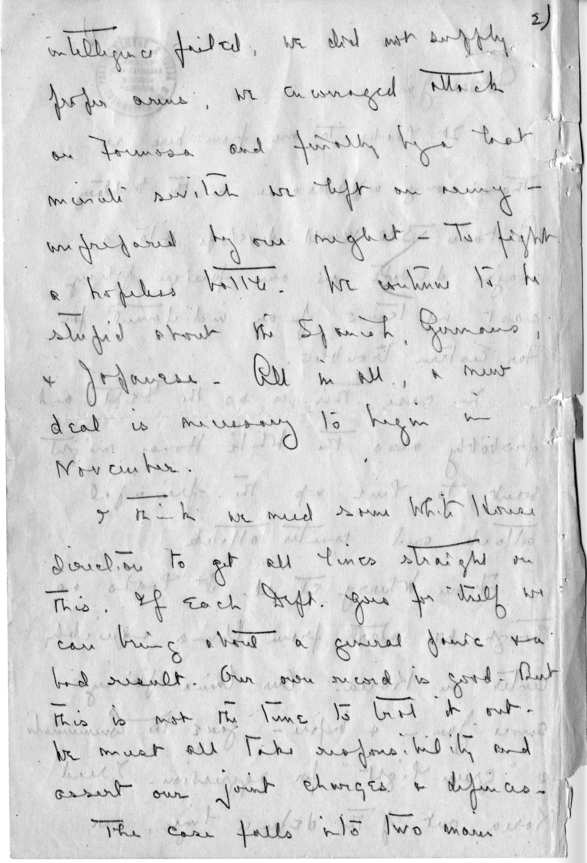 2)
intelligence failed, we did not supply
proper arms, we encouraged attack
on Formosa and finally by a last
minute switch we left an army –
unprepared by our neglect – to fight
a hopeless battle. We continue to be
stupid about the Spanish, Germans,
& Japanese – All in all, a new
deal is necessary to begin in
November.
I think we need some White House
direction to get all lines straight on
this. If each Dept. goes for itself we
can bring about a general panic & a
bad result. Our own record is good. But
this is not the time to trot it out.
We must all take responsibility and
assert our joint charges & defences –
The case falls into two main